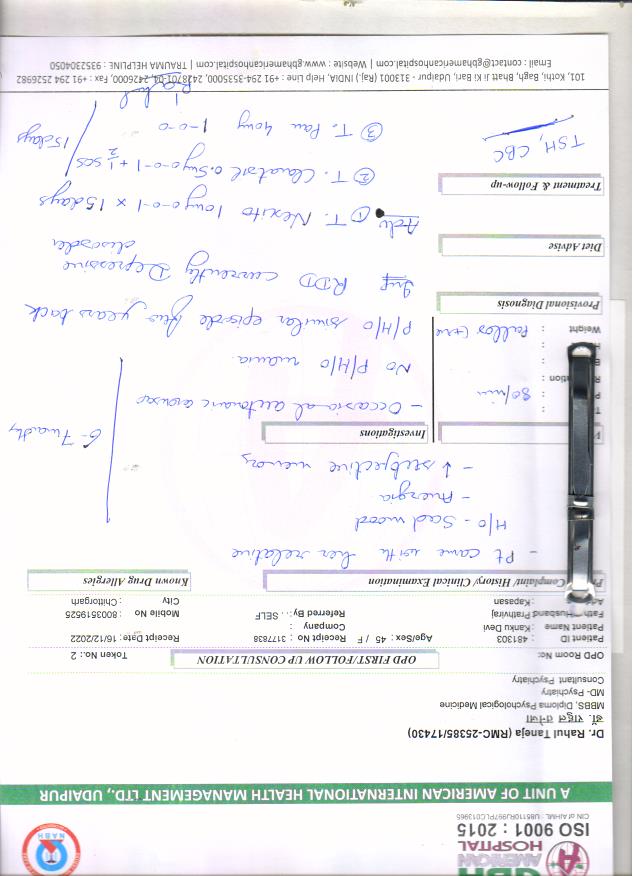 GBH
AMERICAN
HOSPITAL
ISO 9001 : 2015
NABH
A UNIT OF AMERICAN INTERNATIONAL HEALTH MANAGEMENT LTD., UDAIPUR
Dr. Rahul Taneja (RMC-25385/17430)
डॉ. राहुल तनेजा
MBBS, Diploma Psychological Medicine
MD- Psychiatry
Consultant Psychiatry
OPD Room No:
OPD FIRST/FOLLOW UP CONSULTATION
Token No.: 2
Patient ID : 481303 Age/Sex : 45 / F Receipt No : 3177838 Receipt Date : 16/12/2022
Patient Name : Kanku Devi Company : Mobile No : 8003519525
Husband Prathviraj Referred By : SELF City : Chittorgarh
: Kapasan
Complaint/ History/ Clinical Examination
Known Drug Allergies
- Pt came with her relative
H/O - Sad mood
- Anergia
- ↓ subjective memory
6-7 months
Investigations
- Occasional autonomic arousal
80/min
No P/H/O mania
P/H/O similar episode few years back
Weight :
Provisional Diagnosis
Imp RDD currently Depressive
disorder
Diet Advise
Adv ① T. Nexito 10mg 0-0-1 x 15days
Treatment & Follow-up
② T. Clonotril 0.5mg 0-0-1 + 1/2 SOS
③ T. Pan 40mg 1-0-0
15days
TSH, CBC
Rahul
101, Kothi, Bagh, Bhatt Ji Ki Bari, Udaipur - 313001 (Raj.) INDIA, Help Line : +91 294-3535000, 2428701-04, 2426000, Fax : +91 294 2526982
Email : contact@gbhamericanhospital.com | Website : www.gbhamericanhospital.com | TRAUMA HELPLINE : 9352304050